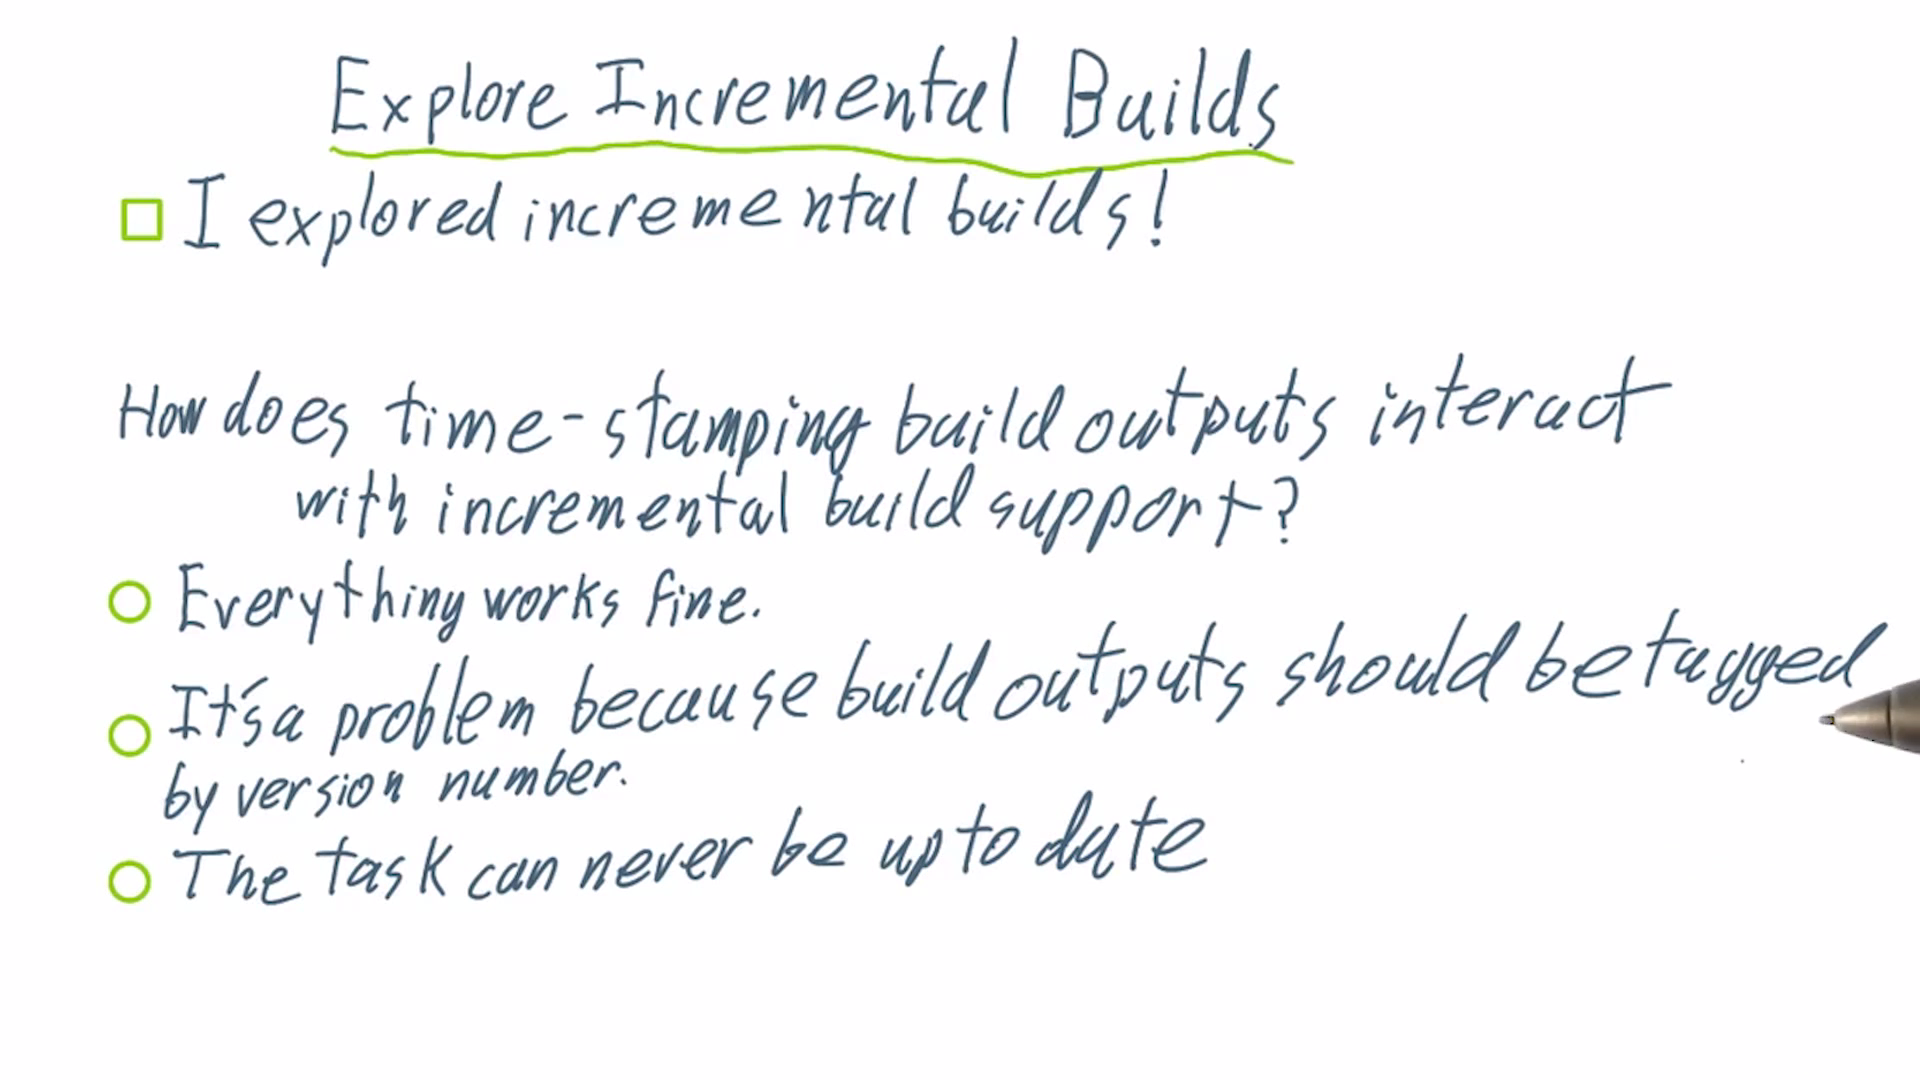 Explore Incremental Builds
I explored incremental builds!
How does time-stamping build outputs interact
with incremental build support?
Everything works fine.
It's a problem because build outputs should be tagged
by version number.
The task can never be up to date